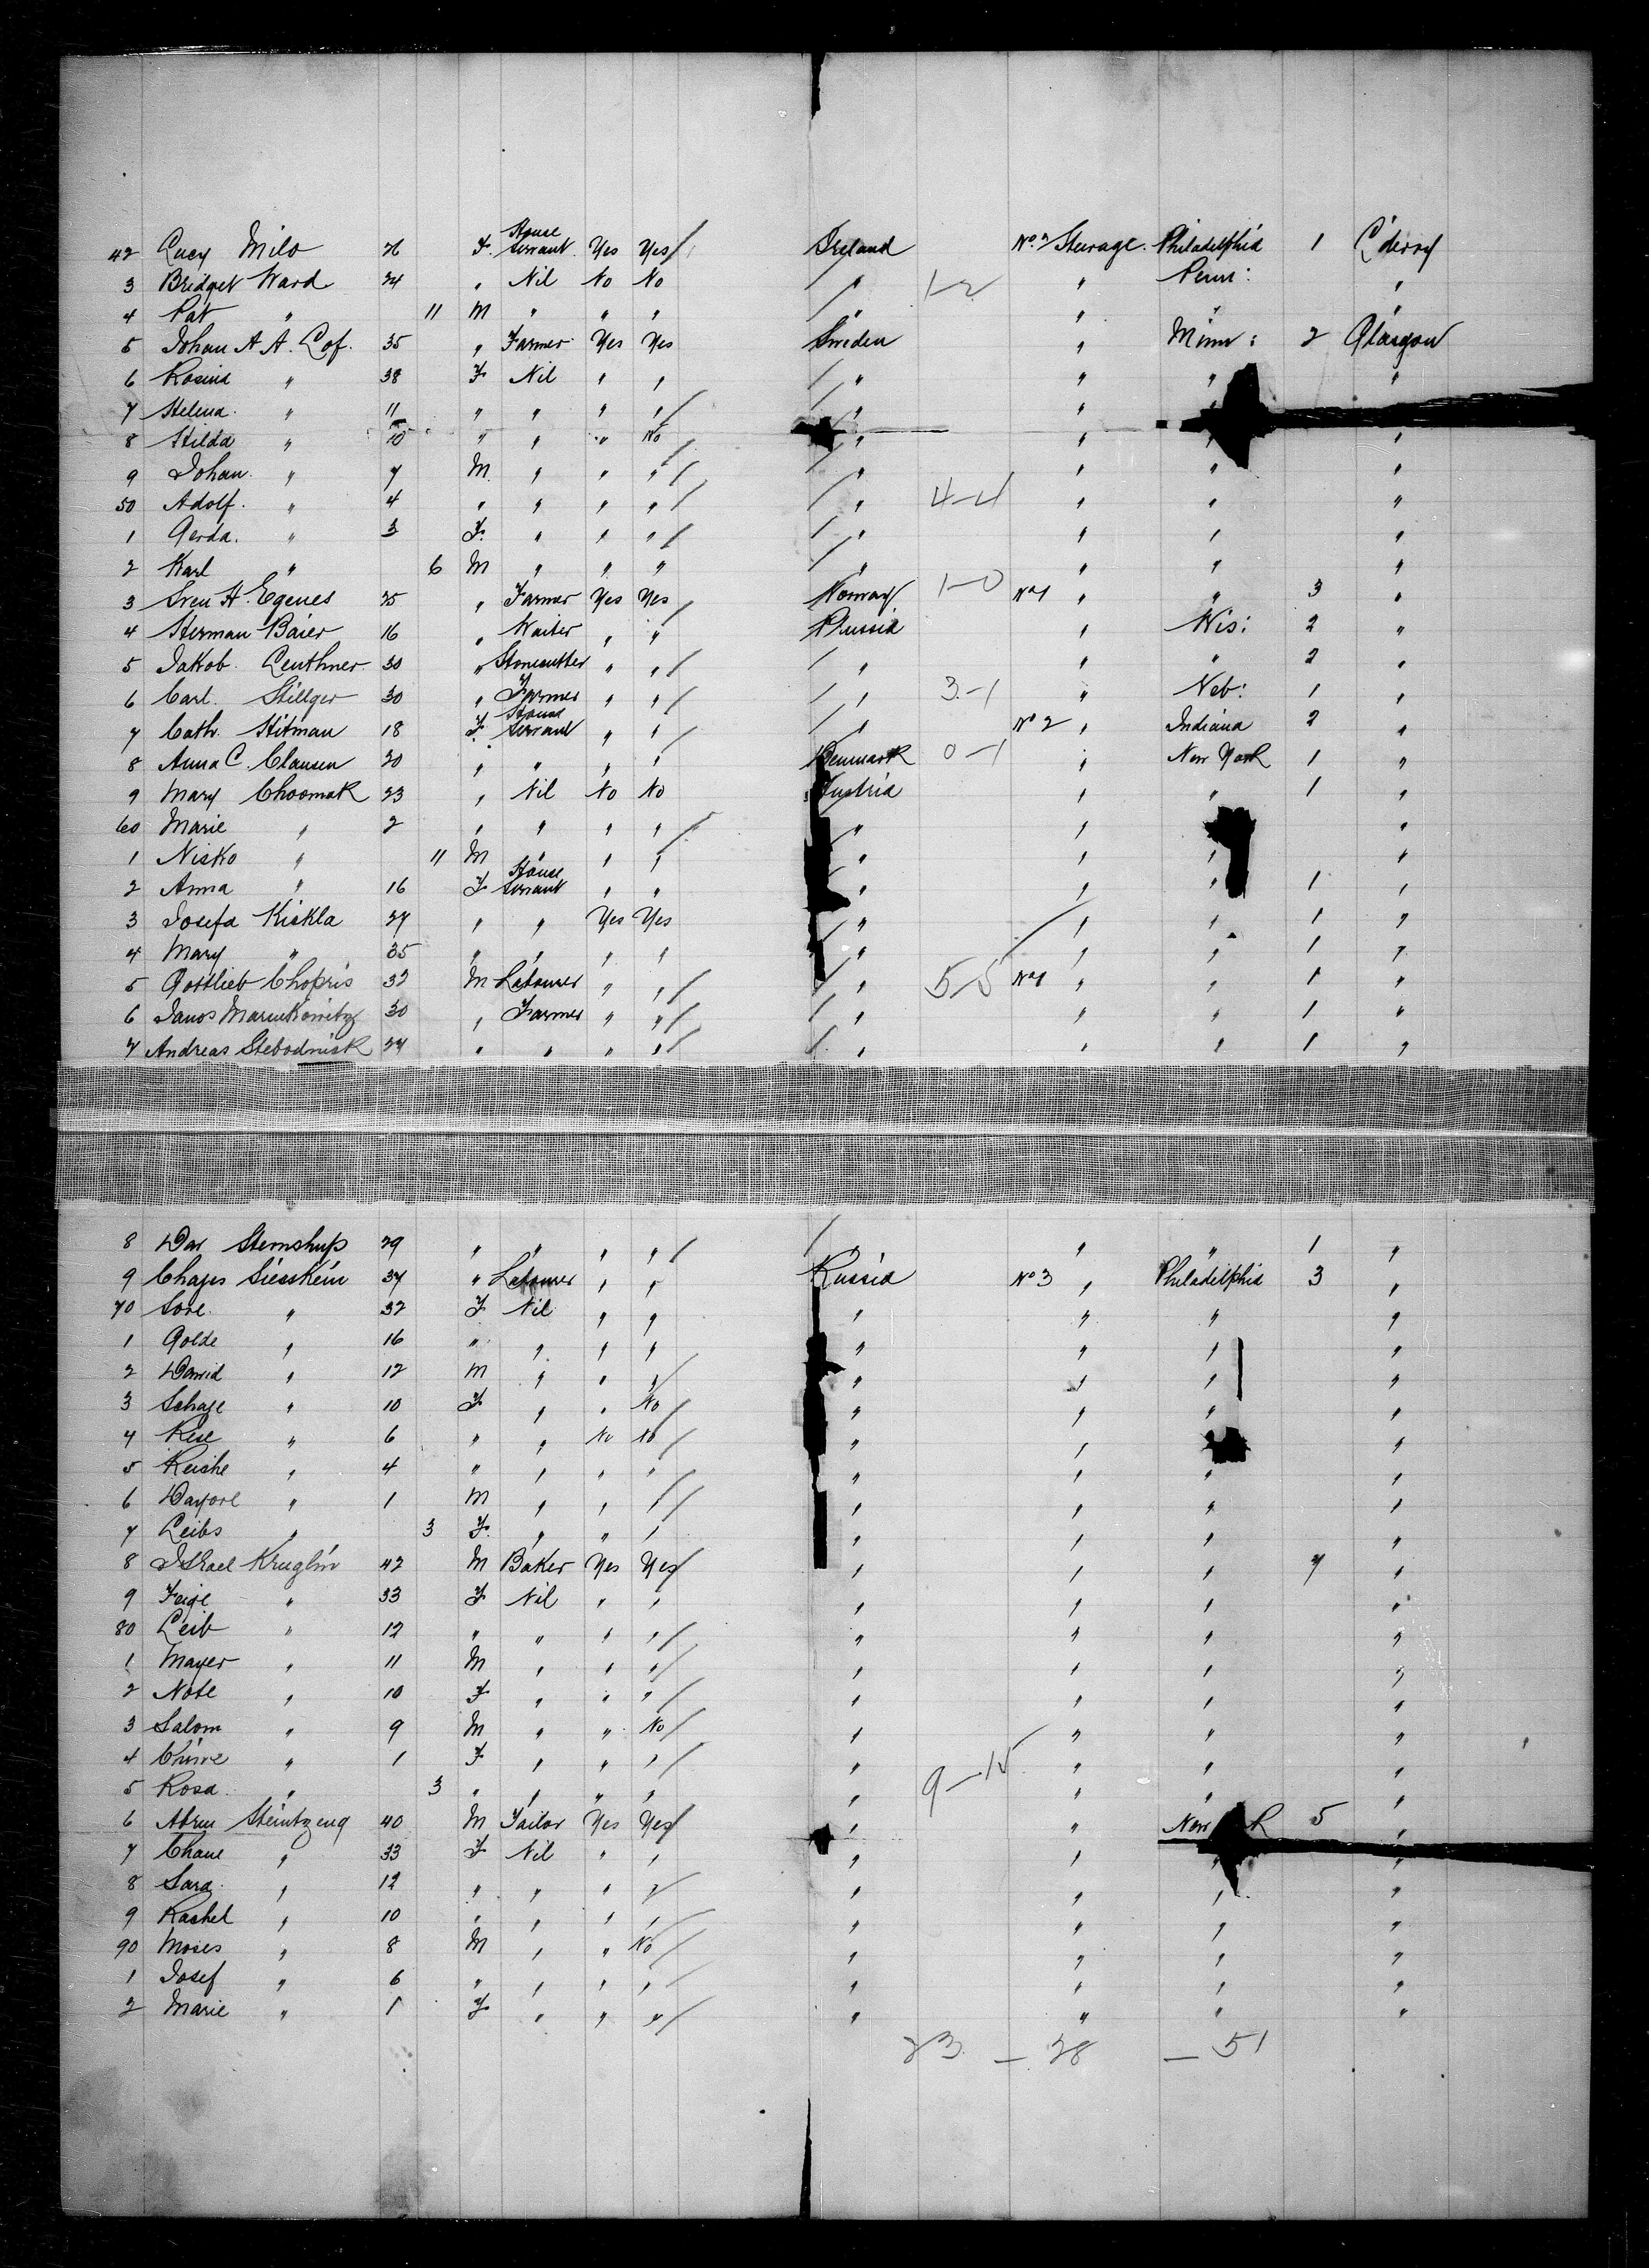 42 Lucy Milo 26 F. House Servant Yes Yes Ireland No 2 Steerage. Philadelphia 1 L'derry
3 Bridget Ward 24 " Nil No No " 1-2 " Penn: "
4 Pat " 11 M " " " " " " "
5 Johan A. A. Lof. 35 " Farmer Yes Yes Sweden " Minn: 2 Glasgow
6 Rosina " 38 F Nil " " " " " "
7 Helena " 11 " " " " " " "
8 Hilda " 10 " " " No " " " "
9 Johan " 7 M " " " " " " "
50 Adolf. " 4 " " " " " 4-4 " " "
1 Gerda. " 3 F. " " " " " " "
2 Karl " 6 M " " " " " " "
3 Sven H. Egenes 25 " Farmer Yes Yes Norway 1-0 No 1 " " 3 "
4 Herman Baier 16 " Waiter " " Prussia " Wis: 2 "
5 Jakob Leuthner 30 " Stonecutter " " " " " 2 "
6 Carl Hillger 30 " Farmer " " " 3-1 " Neb: 1 "
7 Cath. Hitman 18 F. House Servant " " " No 2 " Indiana 2 "
8 Anna C. Clausen 20 " " " " Denmark 0-1 " New York 1 "
9 Mary Choomak 23 " Nil No No Austria " " 1 "
60 Marie " 2 " " " " " " "
1 Nisko " 11 M " " " " " " "
2 Anna " 16 F House Servant " " " " " 1 "
3 Josefa Kiskla 27 " " Yes Yes " " " 1 "
4 Mary " 35 " " " " " " " 1 "
5 Gottlieb Chopris 32 M Labourer " " " 5-5 No 1 " " 1 "
6 Janos Marinkowitz 30 " Farmer " " " " " 1 "
7 Andreas Stebodnisk 27 " " " " " " " 1 "
8 Dav Sternshus 29 " " " " " " " 1 "
9 Chajes Siesskein 37 " Labourer " " Russia No 3 " Philadelphia 3 "
70 Sore " 32 F Nil " " " " " "
1 Golde " 16 " " " " " " " "
2 Dawid " 12 M " " " " " " "
3 Schaje " 10 F " " No " " " "
4 Rese " 6 " " No No " " " "
5 Reishe " 4 " " " " " " " "
6 " 1 M " " " " " " "
7 Leibs " 3 F. " " " " " "
8 Israel Kruglin 42 M Baker Yes Yes " " " 7 "
9 Feige " 33 F Nil " " " " " "
80 Leib " 12 " " " " " " " "
1 Mayer " 11 M " " " " " " "
2 Note " 10 F " " " " " " "
3 Salom " 9 M " " No " " " "
4 " 1 F " " " " " " "
5 Rosa " 3 " " " " " 9-15 " " "
6 Abrm Steintzeug 40 M Tailor Yes Yes " " New k 5 "
7 Chane " 33 F Nil " " " " " "
8 Sara " 12 " " " " " " " "
9 Rachel " 10 " " " " " " " "
90 Moses " 8 M " " No " " " "
1 Josef " 6 " " " " " " " "
2 Marie " 1 F " " " " " " "
23 - 28 - 51